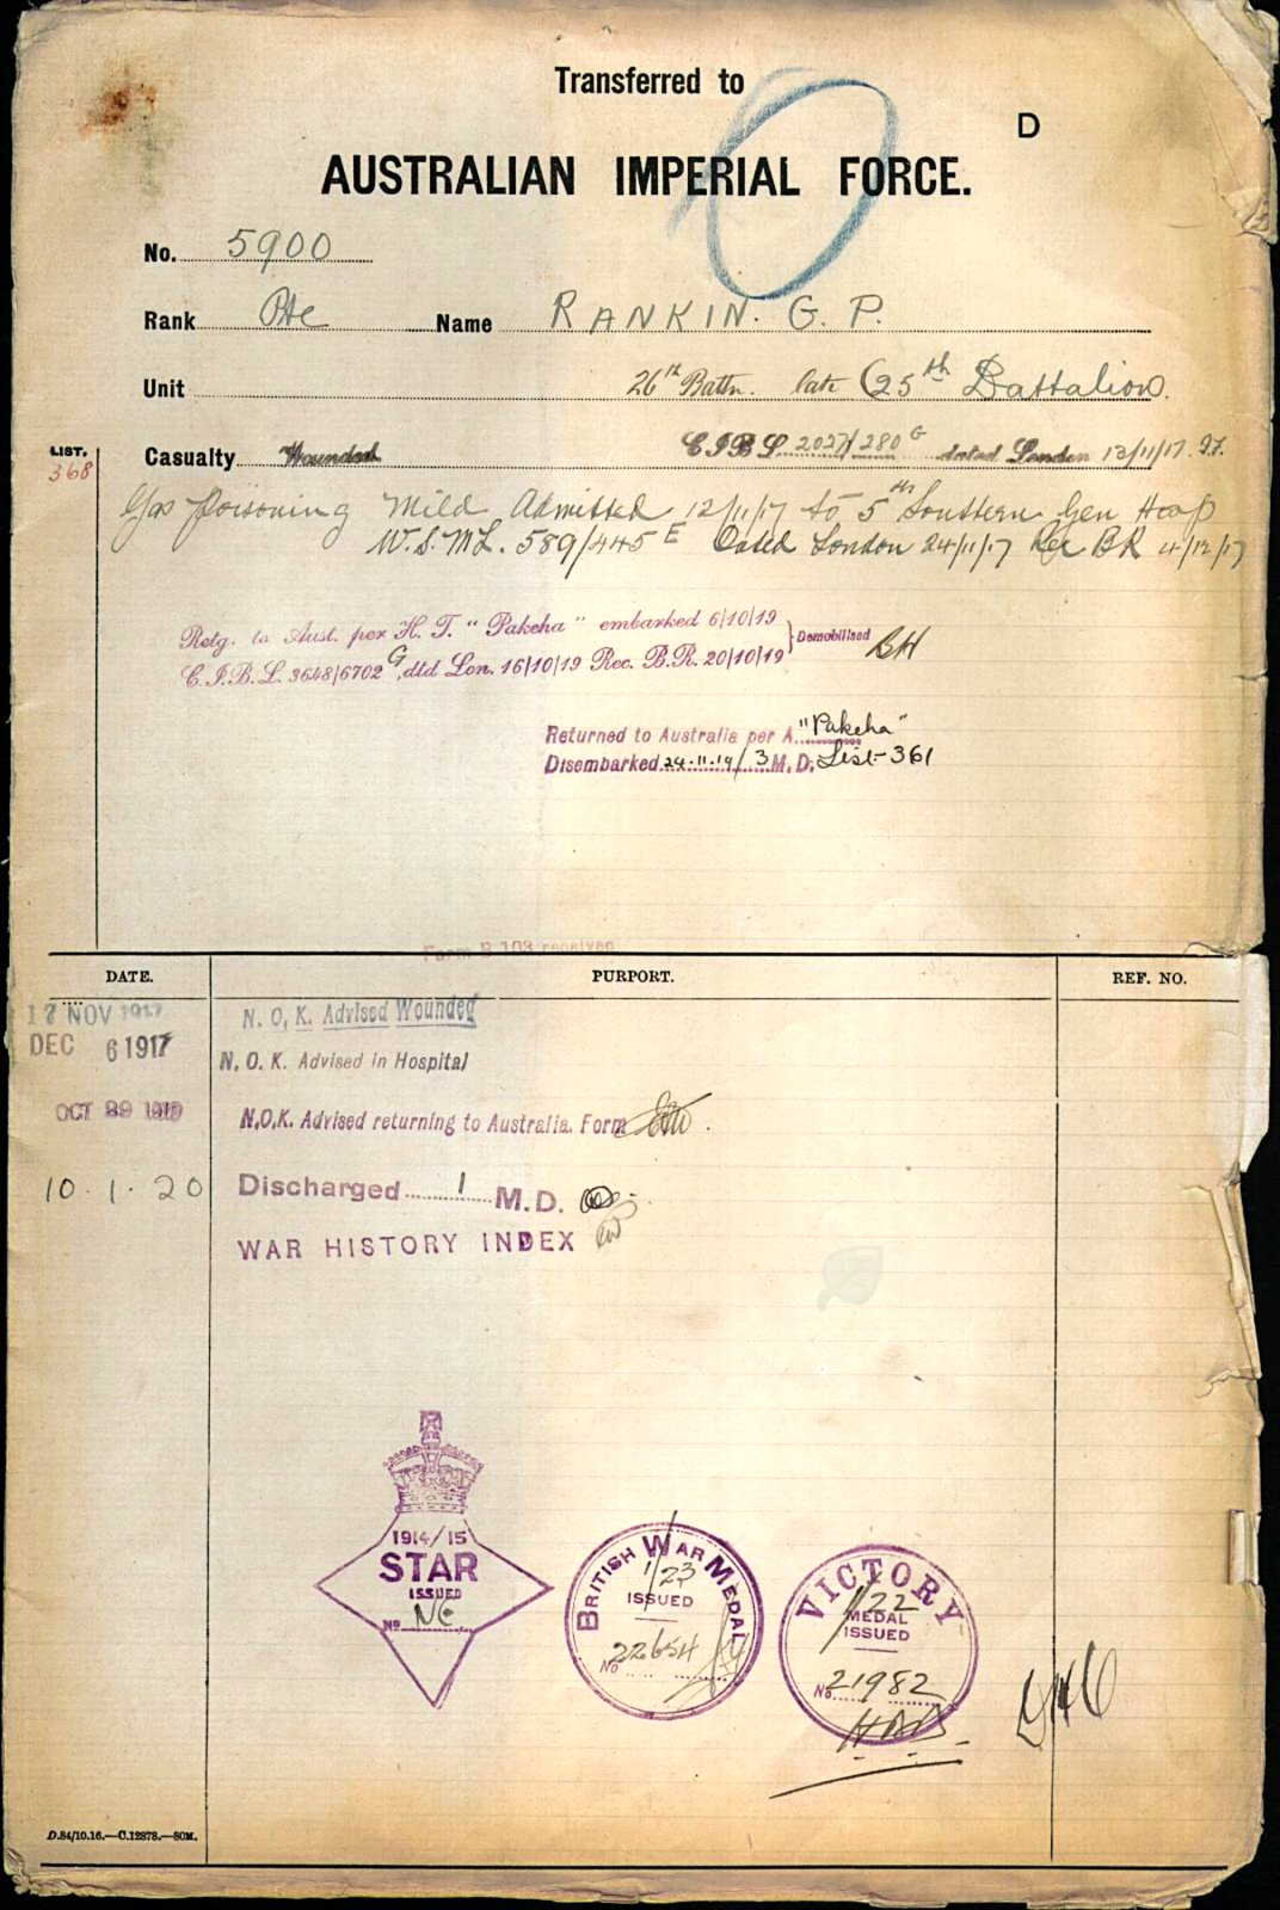 Transferred to
D
AUSTRALIAN IMPERIAL FORCE.
No. 5900
Rank Pte Name RANKIN. G. P.
Unit 26th Battn. late (25th Battalion.
LIST. 368
Casualty Wounded C I B L 2027/280 G dated London 12/11/17
Gas poisoning Mild Admitted 12/11/17 to 5th Southern Gen Hosp
W.S.ML. 589/445 E Dated London 24/11/17 Rec BR 4/12/17
Retg. to Aust. per H. T. "Pakeha" embarked 6/10/19
C.I.B.L. 3648/6702 G, dtd Lon. 16/10/19 Rec. B.R. 20/10/19 } Demobilised BH
Returned to Australia per A. "Pakeha"
Disembarked 24.11.19/ 3 M.D. List 361
Form B 103 received
DATE. PURPORT. REF. NO.
17 NOV 1917 N. O. K. Advised Wounded
DEC 6 1917 N. O. K. Advised in Hospital
OCT 1919 N.O.K. Advised returning to Australia. Form
10.1.20 Discharged 1 M.D.
WAR HISTORY INDEX
1914/15
STAR
ISSUED
No NE
BRITISH WAR MEDAL
1/23
ISSUED
No 22654
VICTORY
1/22
MEDAL
ISSUED
No 21982
D.84/10.16.—C.12878.—50M.